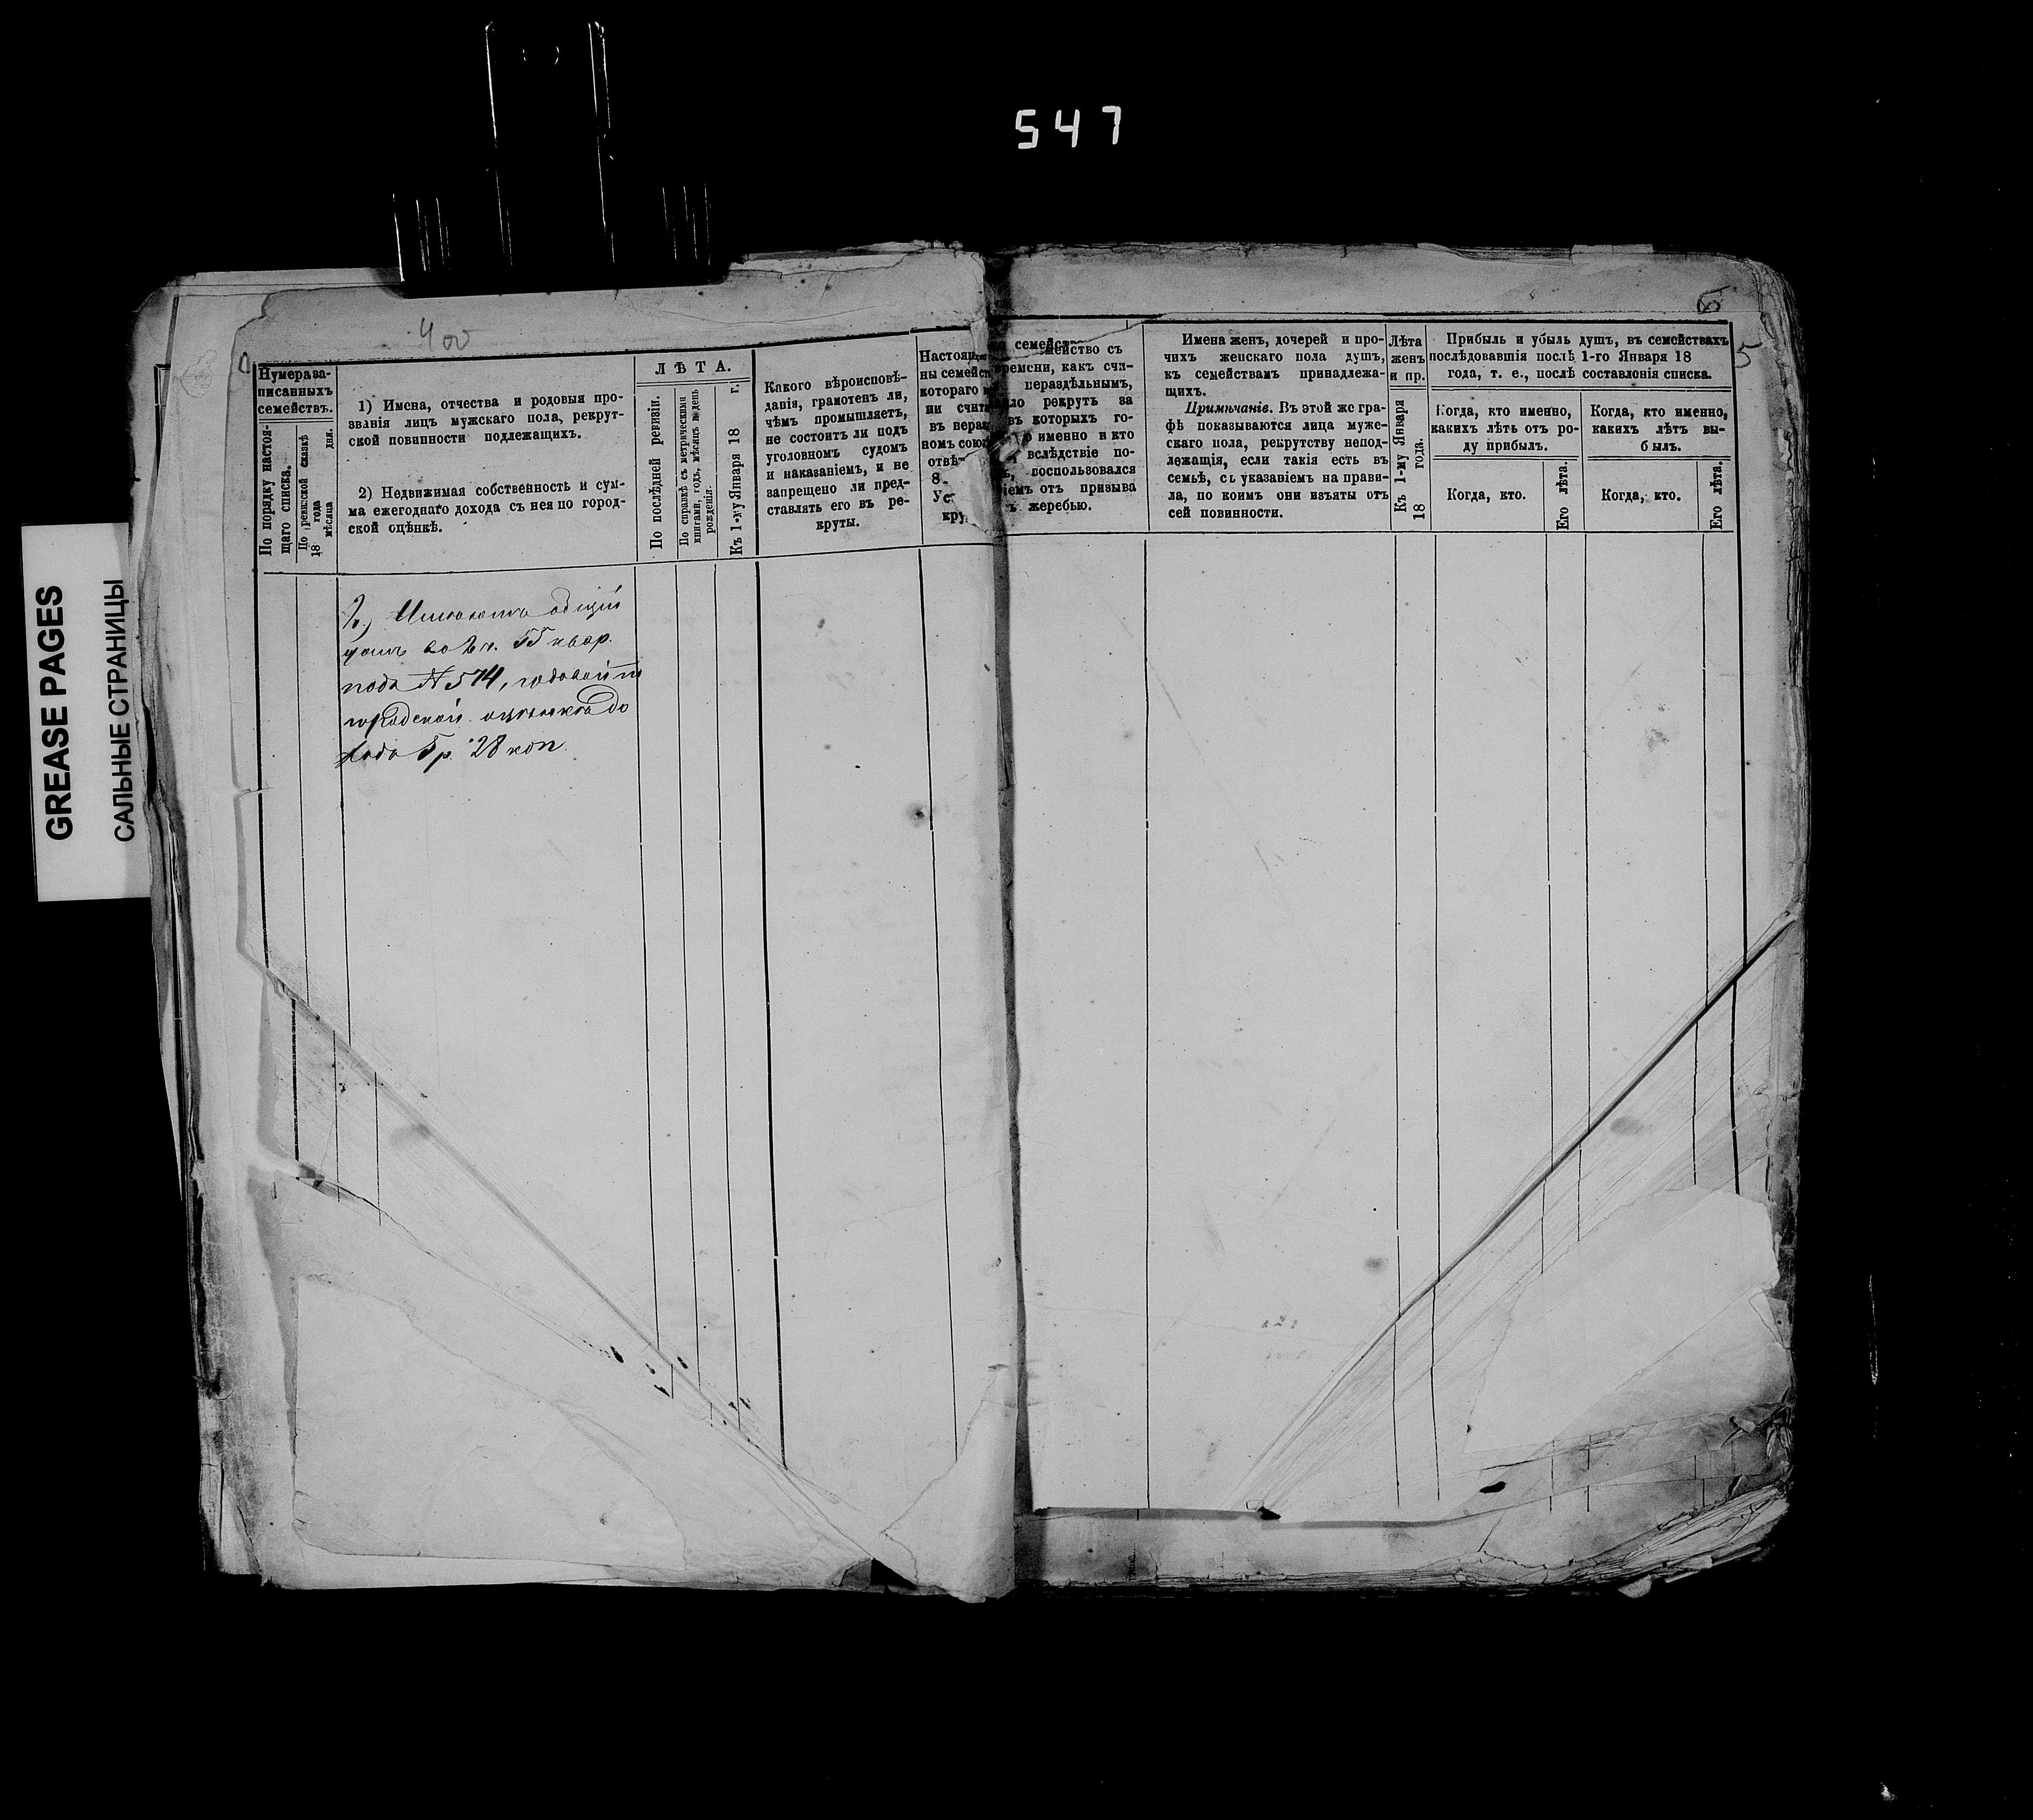 547
GREASE PAGES
САЛЬНЫЕ СТРАНИЦЫ
400
Нумера за-
писанныхъ
семействъ.
По порядку настоя-
щаго списка.
По ревизской сказкѣ
18 года
мѣсяца дня.
1) Имена, отчества и родовыя про-
званія лицъ мужскаго пола, рекрут-
ской повинности подлежащихъ.
2) Недвижимая собственность и сум-
ма ежегоднаго дохода съ нея по город-
ской оцѣнкѣ.
ЛѢТА.
По послѣдней ревизіи.
По справкѣ съ метрическими
книгами, годъ, мѣсяцъ и день
рожденія.
Къ 1-му Января 18 г.
Какого вѣроисповѣ-
данія, грамотенъ ли,
чѣмъ промышляетъ,
не состоитъ ли подъ
уголовномъ судомъ
и наказаніемъ, и не
запрещено ли пред-
ставлять его въ ре-
круты.
Настоящ
ны семейст
котораго
ни счит
въ нераз
номъ союз
отвѣ-
8.
Ус
кру
семейст
мейство съ
времени, какъ счи-
нераздѣльнымъ,
рекрутъ за
въ которыхъ го-
именно и кто
вслѣдствіе по-
воспользовался
іемъ отъ призыва
жеребью.
Имена женъ, дочерей и про-
чихъ женскаго пола душъ,
къ семействамъ принадлежа-
щихъ.
Примѣчаніе. Въ этой же гра-
фѣ показываются лица муже-
скаго пола, рекрутству непод-
лежащія, если такія есть въ
семьѣ, съ указаніемъ на прави-
ла, по коимъ они изъяты отъ
сей повинности.
Лѣта
женъ
и пр.
Къ 1-му Января
18 года.
Прибыль и убыль душъ, въ семействахъ
послѣдовавшія послѣ 1-го Января 18
года, т. е., послѣ составленія списка.
Когда, кто именно,
какихъ лѣтъ отъ ро-
ду прибылъ.
Когда, кто.
Его лѣта.
Когда, кто именно,
какихъ лѣтъ вы-
былъ.
Когда, кто.
Его лѣта.
6
5
2, Имѣютъ общій
домъ во 2 ч. 55 квар.
подъ N 574, годовой по
городской оцѣнкѣ до
хода 5 р. 28 коп.